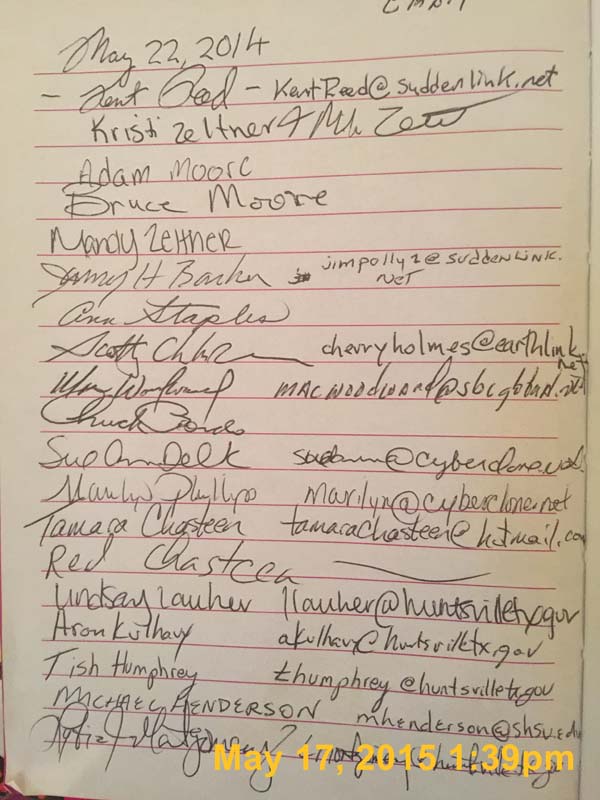 EMAIL
May 22, 2014
- Kent Reed - KentReed@suddenlink.net
Kristi Zeltner &
Adam Moore
Bruce Moore
Mandy Zeltner
H Barker jimpolly2@suddenlink.
NET
Ann Staples
Scott cherryholmes@earthlink.
net
macwoodward@sbcglobal.net
Chuck
Sue Ann Delk @cyberclone.net
Marilyn Phillips marilyn@cyberclone.net
Tamara Chasteen tamarachasteen@hotmail.com
Red Chasteen
Lindsay Lauher llauher@huntsvilletx.gov
Aron Kulhavy akulhavy@huntsvilletx.gov
Tish Humphrey thumphrey@huntsvilletx.gov
MICHAEL HENDERSON mhenderson@shsu.edu
May 17, 2015 1:39pm